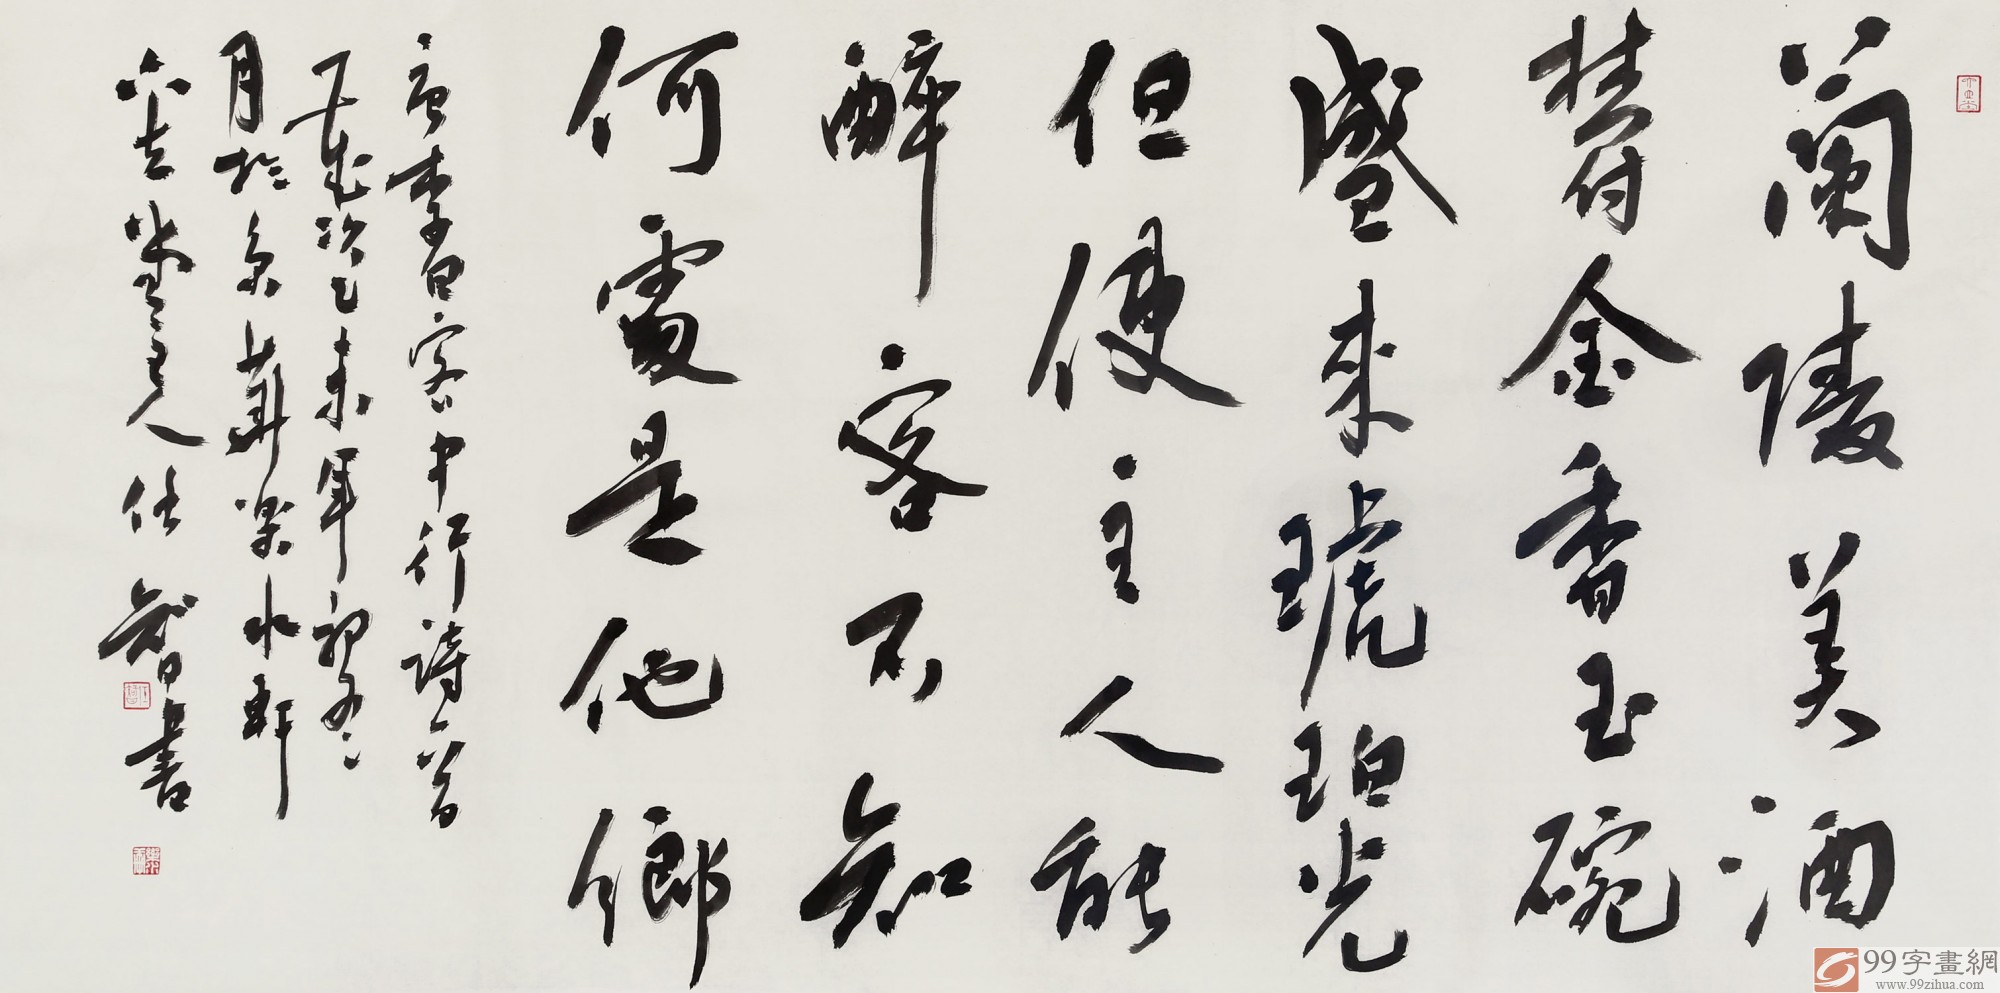 蘭陵美酒
鬱金香玉碗
盛来琥珀光
但使主人能
醉客不知
何處是他鄉
唐李白客中行詩一首
歲次乙未年初冬
月於京華樂水軒
堂主人任智書
99字畫網
www.99zihua.com